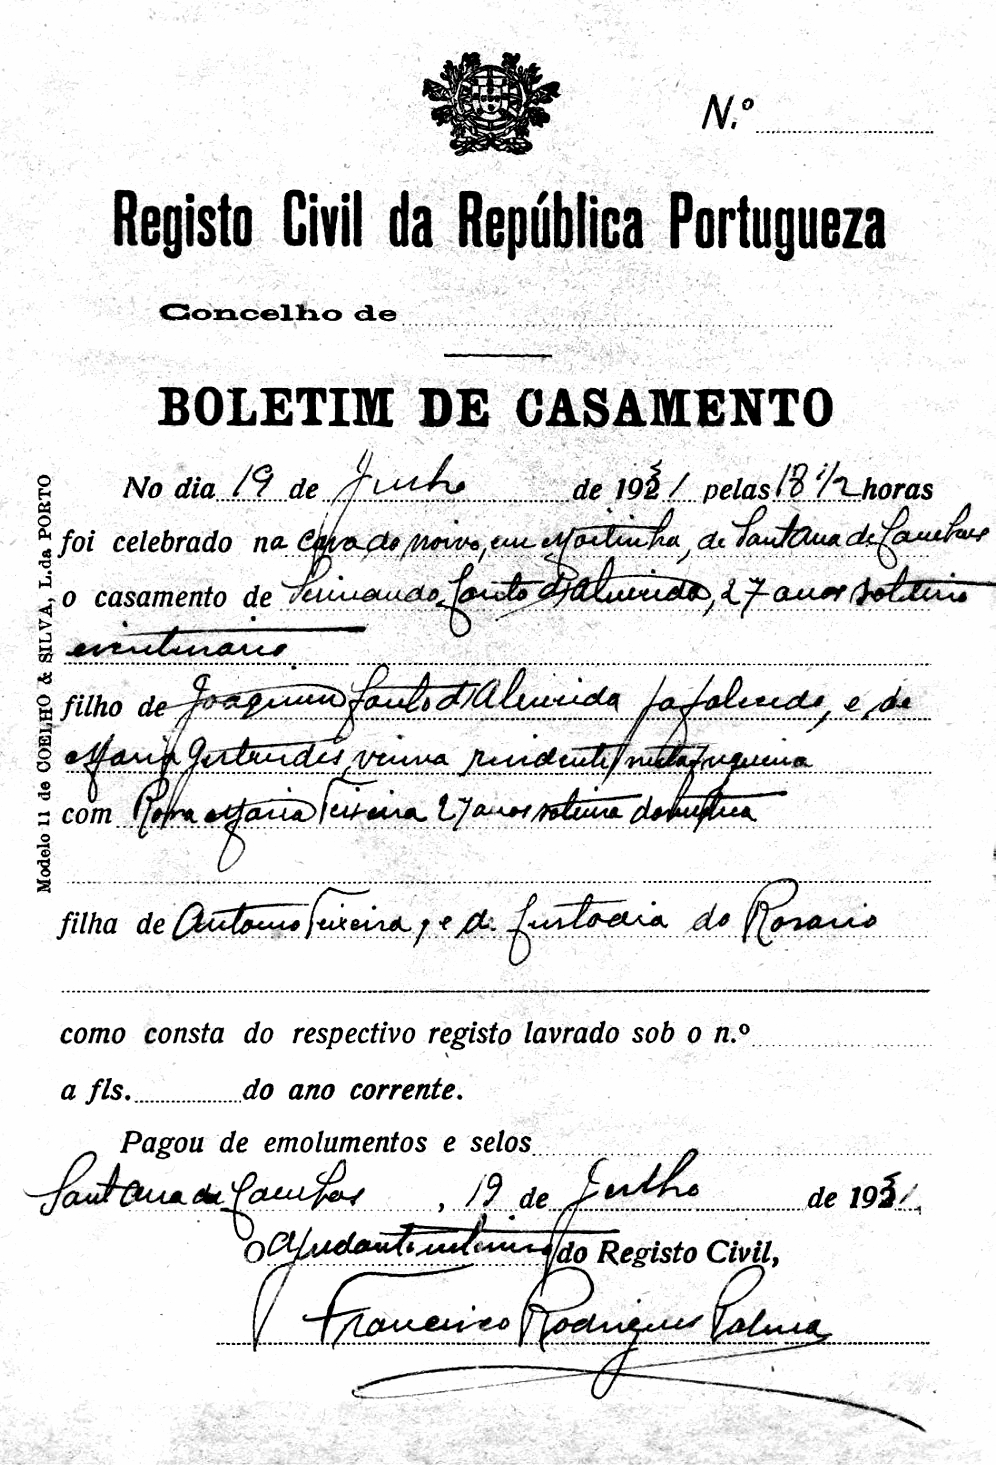 N.º
Registo Civil da República Portugueza
Concelho de
BOLETIM DE CASAMENTO
No dia 19 de Junho de 1931 pelas 18 1/2 horas
foi celebrado na casa do noivo, em Moitinha, de Sant'Ana de Cambas
o casamento de Fernando Santo d'Almeida, 27 anos solteiro
filho de Joaquim Santo d'Almeida ja falecido, e de
Maria Gertrudes, viuva residente nesta freguesia
com Rosa Maria Teixeira 27 anos solteira domestica
filha de Antonio Teixeira, e de Custodia do Rosario
como consta do respectivo registo lavrado sob o n.º
a fls. do ano corrente.
Pagou de emolumentos e selos
Sant'Ana de Cambas, 19 de Junho de 1931,
O Ajudante interino do Registo Civil,
Francisco Rodrigues Palma
Modelo 11 de COELHO & SILVA, L.da PORTO